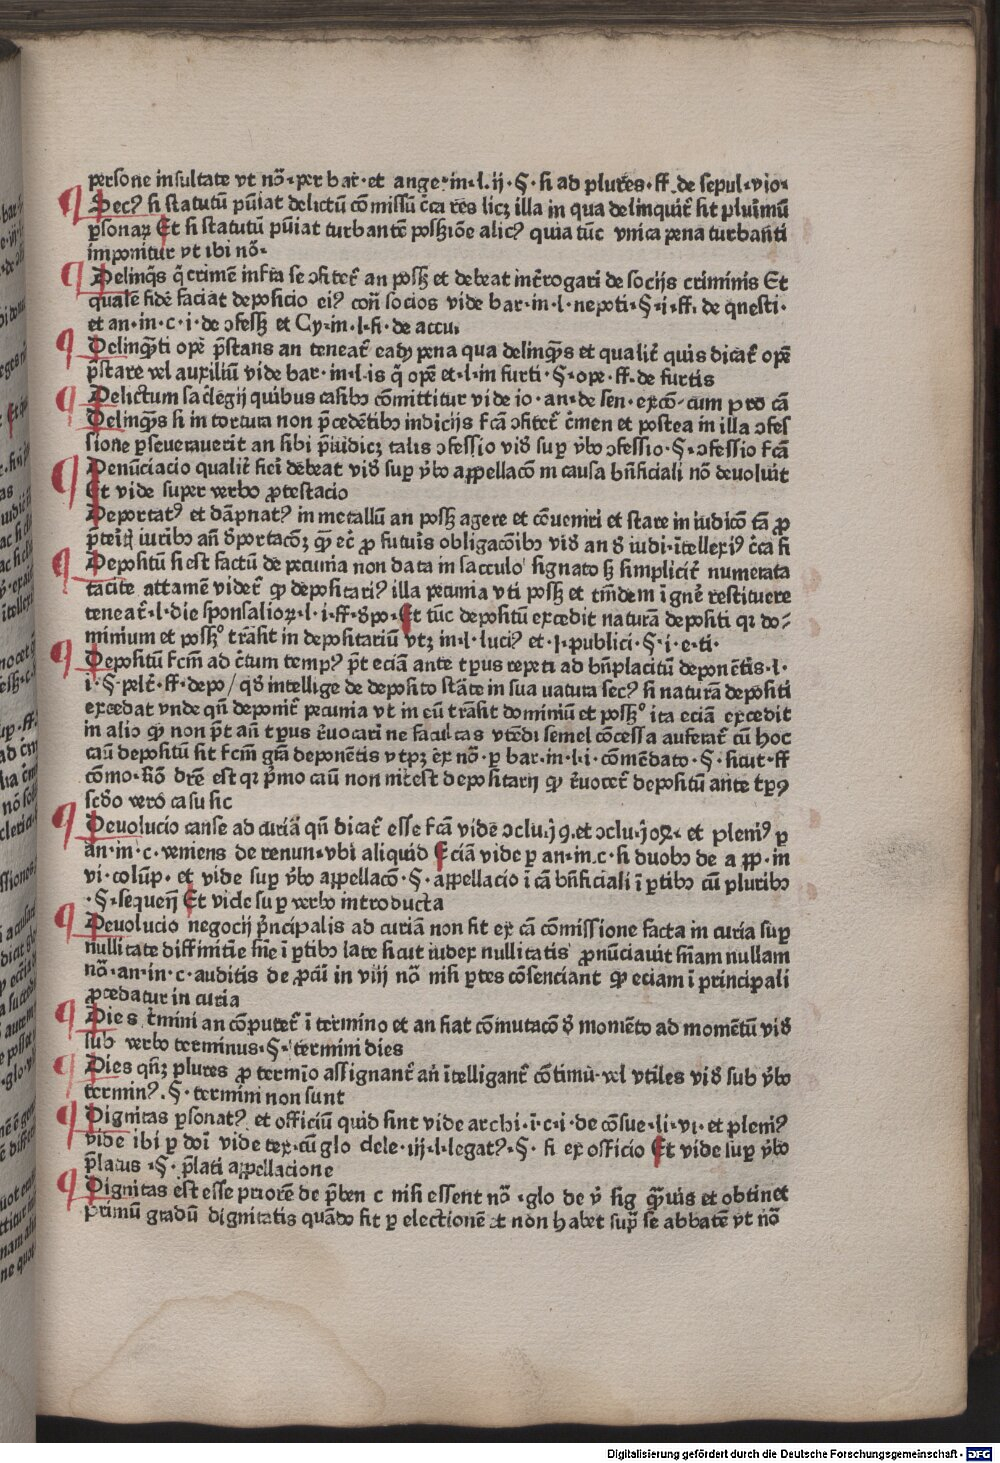 persone insultate vt nō·per bar·et ange·in·l·ij·§·si ad plures·ff·de sepul·vio·
Secꝰ si statutū pūiat delictū cōmissū c̄ca res licꝫ illa in qua delinquit̄ sit pluīmū
p̄sonaꝝ Et si statutū pūiat turbantē possꝫiōe alicꝰ quia tūc vnica pena turbanti
imponitur vt ibi nō·
Delinq̄s q̄ crimē infra se ɔfiteť an possꝫ et debeat int̄rogari de socijs criminis Et
qualē fidē faciat deposicio eiꝰ con̄ socios vide bar·in·l·nepoti·§·i·ff·de questi·
et an·in·c·i·de ɔfessꝫ et Cy·in·l·fi·de accu·
Delinq̄nti opē p̄stans an teneať eadꝫ pena qua delinq̄ns et qualiť quis dicať opē
p̄stare vel auxiliū vide bar·in·l·is q̄ opē et·l·in furti·§·ope·ff·de furtis
Delictum sac̄legij quibus casibꝰ cōmittitur vide io·an·de sen·excō·cum pro cā
Delinq̄ns si in tortura non p̄cedētibꝰ indicijs f̄cā ɔfiteť c̄men et postea in illa ɔfes
sione p̄seuerauerit an sibi p̄iudicꝫ talis ɔfessio vid̄ sup̄ v̄bo ɔfessio·§·ɔfessio f̄cā
Denūciacio qualiť fieri debeat vid̄ sup̄ v̄bo appellacōm causa bn̄ficiali nō deuoluit
Et vide super verbo p̄testacio
Deportatꝰ et dāpnatꝰ in metallū an possꝫ agere et cōueniri et stare in iudicō tā ꝓ
p̄teritꝭ iuribꝰ an̄ d̄portacōꝫ qꝫ ec̄ ꝓ futuris obligacōibꝰ vid̄ an d̄ iudi·ītellexiꝰ c̄ca fi
Depositū si est factū de pecunia non data in sacculo signato sꝫ simpliciť numerata
tacite attamē videť qꝫ depositariꝰ illa pecunia vti possꝫ et tm̄dem ī gn̄e restituere
teneať·l·die sponsalioꝝ·l·i·ff·d̄po·Et tūc depositū excedit naturā depositi qꝛ do-
minium et possꝫ° trāsit in depositariū vtꝫ in·l·luciꝰ et·l·publici·§·i·e·ti·
Depositū f̄cm̄ ad c̄tum tempꝰ p̄t eciā ante tp̄us repeti ad bn̄placitū deponētis·l·
i·§·pelť·ff·depo/ qd̄ intellige de deposito stāte in sua uatura secꝰ si naturā depositi
excedat vnde qn̄ deponiť pecunia vt in eū trāsit dominiū et possꝫ° ita eciā excedit
in alio qꝫ non p̄t an̄ tp̄us r̄uocari ne facultas vtēdi semel cōcessa auferať cū hoc
casū depositū sit f̄cm̄ gr̄a deponētis vtpꝫ ex nō·p̄ bar·in·l·i·cōmēdato·§·sicut·ff
cōmo·Rō dr̄e est qꝛ p̄mo casū non int̄est depositarij qꝫ r̄uoceť depositū ante tp̄ꝰ
sc̄do vero casu sic
Deuolucio canse ad curiā qn̄ dicať esse f̄cā vide ɔclu·ijꝰ·et ɔclu·ijoꝝ· et pleniꝰ p̄
an·in·c·veniens de renun·vbi aliquid Eciā vide p̄ an·in·c·si duobꝰ de a pp·in
vi·colūp·et vide sup̄ v̄bo appellacō·§·appellacio ī cā bn̄ficiali ī p̄tibꝰ cū pluribꝰ
·§·sequen̄ Et vide sup̄ verbo introducta
Deuolucio negocij p̄ncipalis ad curiā non fit ex cā cōmissione facta in curia sup̄
nullitate diffinitīe sn̄ie ī p̄tibꝰ late sicut iudex nullitatis p̄nūciauit sn̄iam nullam
nō·an·in·c·auditis de p̄cū in viij nō nisi p̄tes cōsenciant qꝫ eciam ī principali
p̄cedatur in curia
Dies t̄mini an cōputeť ī termino et an fiat cōmutacō d̄ momēto ad momētū vid̄
sub verbo terminus·§·termini dies
Dies qn̄ꝫ plures ꝓ termīo assignanť an̄ ītelliganť cōtinui·vel vtiles vid̄ sub v̄bo
terminꝰ·§·termini non sunt
Dignitas p̄sonatꝰ et officiū quid sint vide archi·ī·c·i·de cōsue·li·vi·et pleniꝰ
vide ibi p̄ doī vide tex·cū glo dele·iij·l·legatꝰ·§·si ex officio Et vide sup̄ v̄bo
p̄latus·§·p̄lati appellacione
Dignitas est esse priorē de p̄ben c nisi essent nō·glo de v̄ sig q̄muis et obtinet
primū gradū dignitatis quādo fit p̄ electionē et non habet sup̄ se abbatē vt nō
Digitalisierung gefördert durch die Deutsche Forschungsgemeinschaft - DFG